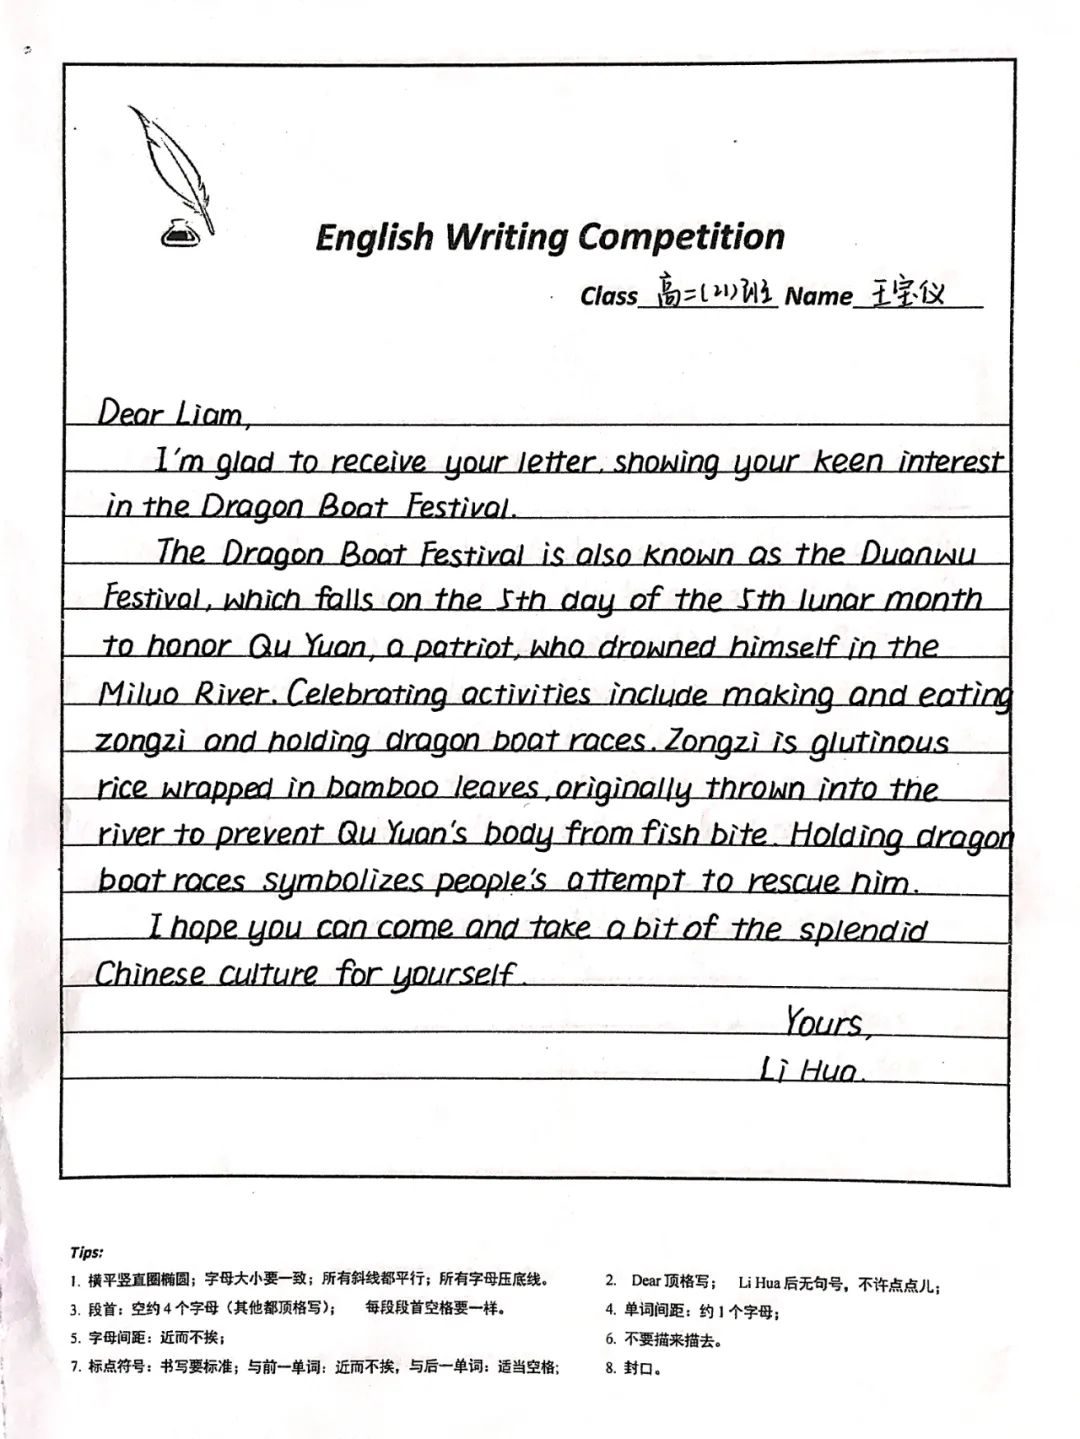 English Writing Competition
Class 高二(21)班 Name 王宝仪
Dear Liam,
I'm glad to receive your letter, showing your keen interest
in the Dragon Boat Festival.
The Dragon Boat Festival is also known as the Duanwu
Festival, which falls on the 5th day of the 5th lunar month
to honor Qu Yuan, a patriot, who drowned himself in the
Miluo River. Celebrating activities include making and eating
zongzi and holding dragon boat races. Zongzi is glutinous
rice wrapped in bamboo leaves, originally thrown into the
river to prevent Qu Yuan's body from fish bite. Holding dragon
boat races symbolizes people's attempt to rescue him.
I hope you can come and take a bit of the splendid
Chinese culture for yourself.
Yours,
Li Hua.
Tips:
1. 横平竖直圈椭圆；字母大小要一致；所有斜线都平行；所有字母压底线。
2. Dear 顶格写； Li Hua 后无句号，不许点点儿；
3. 段首：空约 4 个字母（其他都顶格写）； 每段段首空格要一样。
4. 单词间距：约 1 个字母；
5. 字母间距：近而不挨；
6. 不要描来描去。
7. 标点符号：书写要标准；与前一单词：近而不挨，与后一单词：适当空格；
8. 封口。